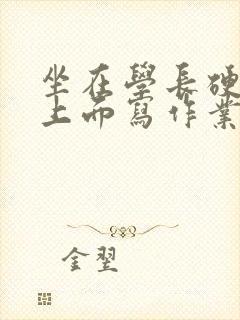 坐在學長硬
上而寫作業
金翌